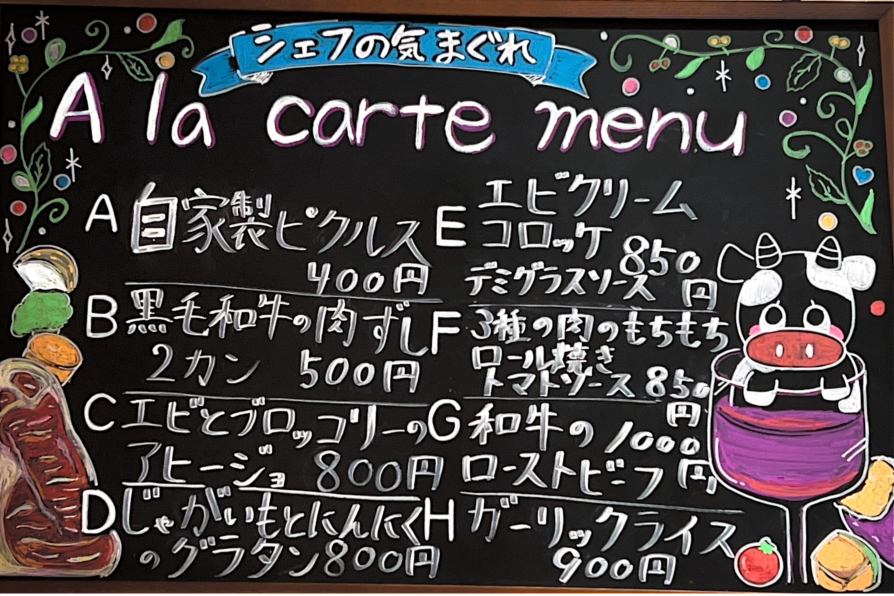 シェフの気まぐれ
A la carte menu
A 自家製ピクルス
400円
B 黒毛和牛の肉ずし
2カン 500円
C エビとブロッコリーの
アヒージョ 800円
D じゃがいもとにんにく
のグラタン 800円
E エビクリーム
コロッケ
デミグラスソース 850円
F 3種の肉のもちもち
ロール焼き
トマトソース 850円
G 和牛の
ローストビーフ 1000円
H ガーリックライス
900円